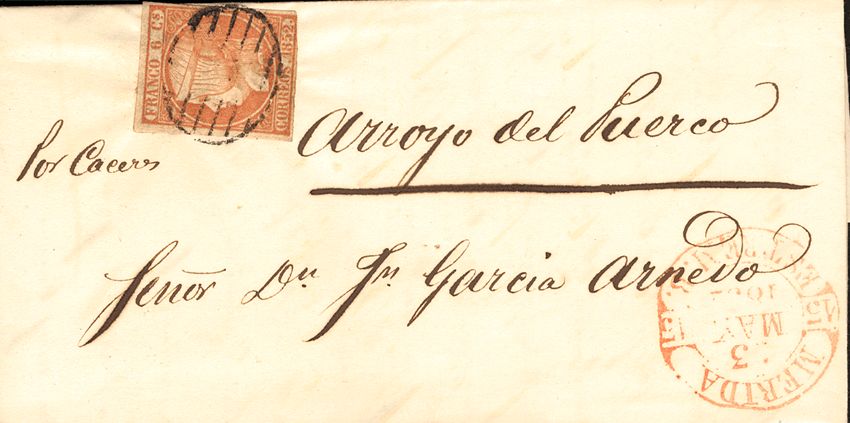 FRANCO 6 Cs
CORREOS 1852
Por Caceres
Arroyo del Puerco
Señor Dn Jn Garcia Arnedo
MERIDA
3
MAY